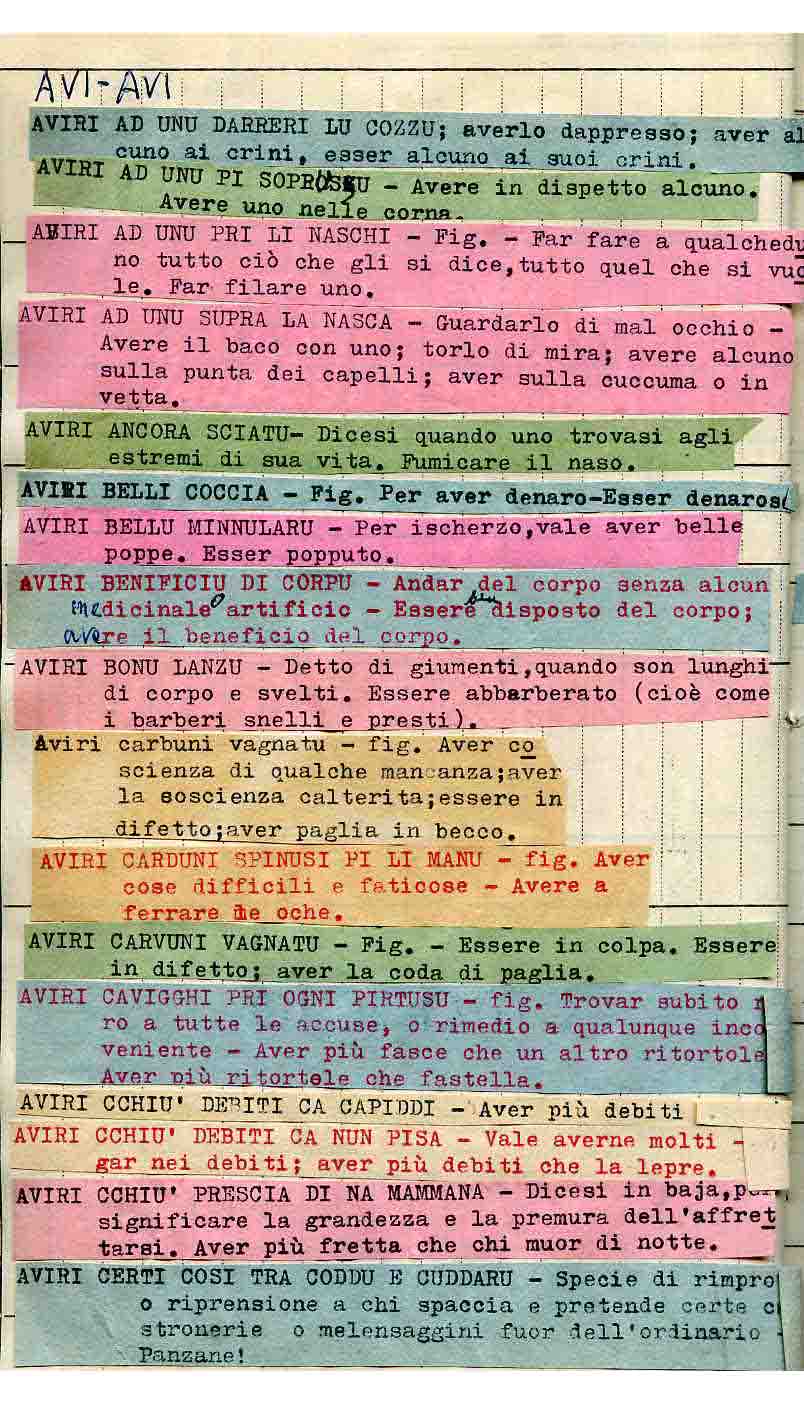 AVI-AVI
AVIRI AD UNU DARRERI LU COZZU; averlo dappresso; aver al
cuno ai crini, esser alcuno ai suoi crini.
AVIRI AD UNU PI SOPROSSU - Avere in dispetto alcuno.
Avere uno nelle corna.
AVIRI AD UNU PRI LI NASCHI - Fig. - Far fare a qualchedu
no tutto ciò che gli si dice,tutto quel che si vuo
le. Far filare uno.
AVIRI AD UNU SUPRA LA NASCA - Guardarlo di mal occhio -
Avere il baco con uno; torlo di mira; avere alcuno
sulla punta dei capelli; aver sulla cuccuma o in
vetta.
AVIRI ANCORA SCIATU- Dicesi quando uno trovasi agli
estremi di sua vita. Fumicare il naso.
AVIRI BELLI COCCIA - Fig. Per aver denaro-Esser denaros
AVIRI BELLU MINNULARU - Per ischerzo,vale aver belle
poppe. Esser popputo.
AVIRI BENIFICIU DI CORPU - Andar del corpo senza alcun
medicinale o artificio - Essere ben disposto del corpo;
avere il beneficio del corpo.
AVIRI BONU LANZU - Detto di giumenti,quando son lunghi
di corpo e svelti. Essere abbarberato (cioè come
i barberi snelli e presti).
Aviri carbuni vagnatu - fig. Aver co
scienza di qualche mancanza;aver
la soscienza calterita;essere in
difetto;aver paglia in becco.
AVIRI CARDUNI SPINUSI PI LI MANU - fig. Aver
cose difficili e faticose - Avere a
ferrare le oche.
AVIRI CARVUNI VAGNATU - Fig. - Essere in colpa. Essere
in difetto; aver la coda di paglia.
AVIRI CAVIGGHI PRI OGNI PIRTUSU - fig. Trovar subito
ro a tutte le accuse, o rimedio a qualunque inco
veniente - Aver più fasce che un altro ritortole
Aver più ritortele che fastella.
AVIRI CCHIU' DEBITI CA CAPIDDI - Aver più debiti
AVIRI CCHIU' DEBITI CA NUN PISA - Vale averne molti -
gar nei debiti; aver più debiti che la lepre.
AVIRI CCHIU' PRESCIA DI NA MAMMANA - Dicesi in baja,
significare la grandezza e la premura dell'affret
tarsi. Aver più fretta che chi muor di notte.
AVIRI CERTI COSI TRA CODDU E CUDDARU - Specie di rimpro
o riprensione a chi spaccia e pretende certe c
stronerie o melensaggini fuor dell'ordinario -
Panzane!